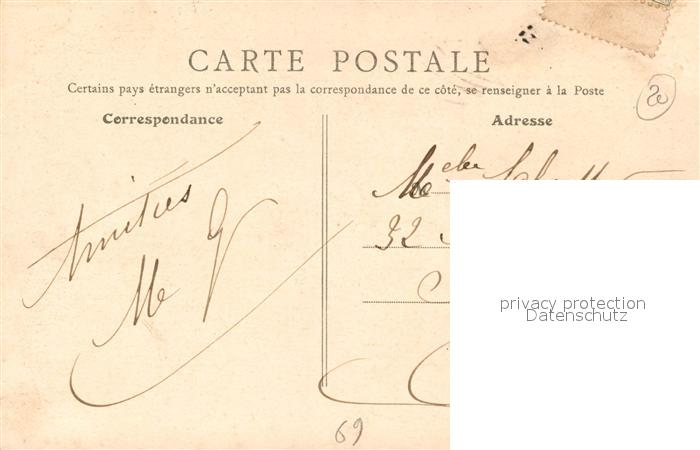 CARTE POSTALE
Certains pays étrangers n'acceptant pas la correspondance de ce côté, se renseigner à la Poste
20
Correspondance
Adresse
Amitiés
32
privacy protection
Datenschutz
69